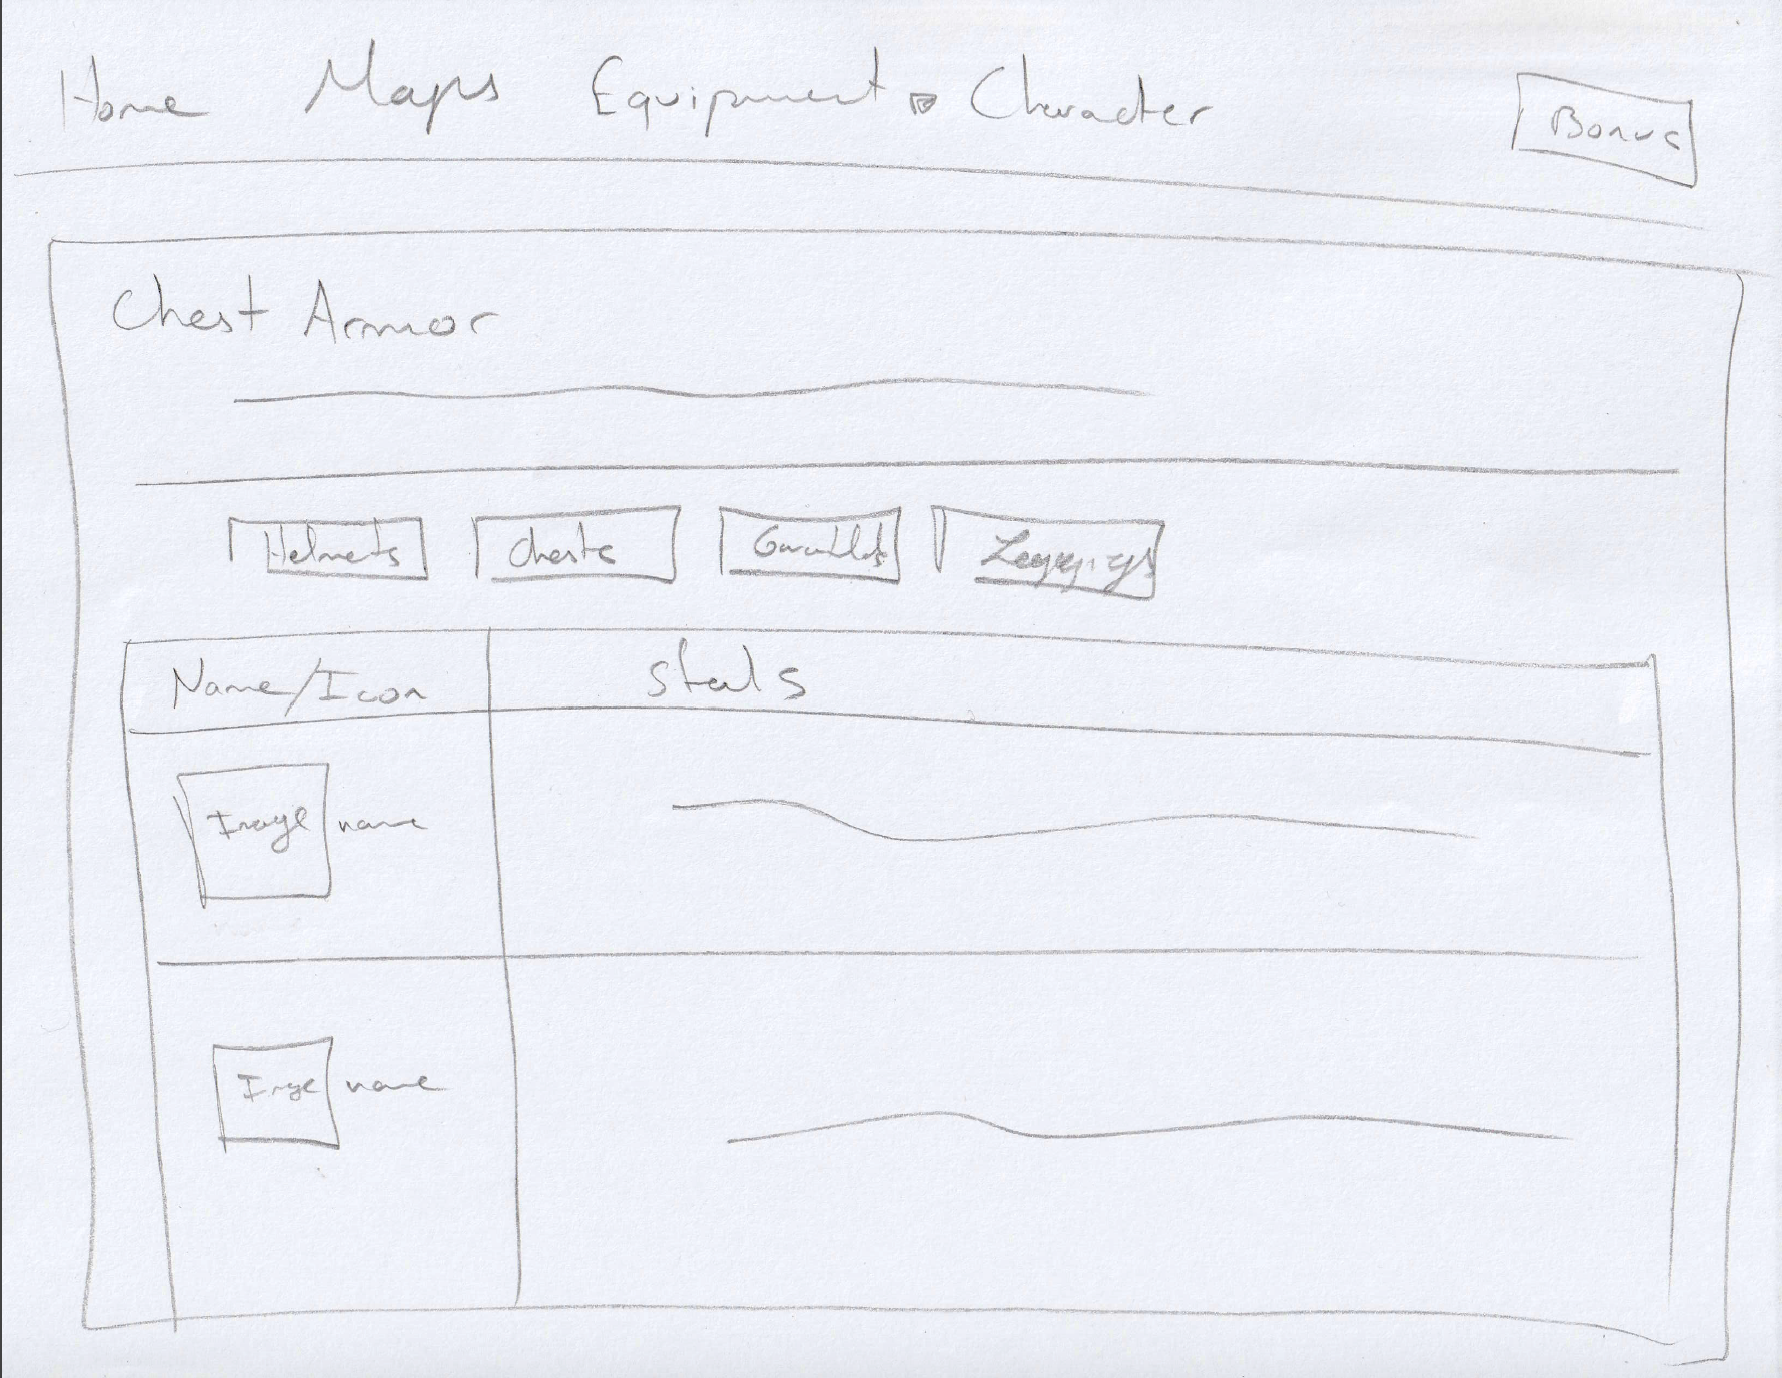 Home Maps Equipment Character Bonus
Chest Armor
Helmets Chests Leggings
Name/Icon Stats
Image name
Image name